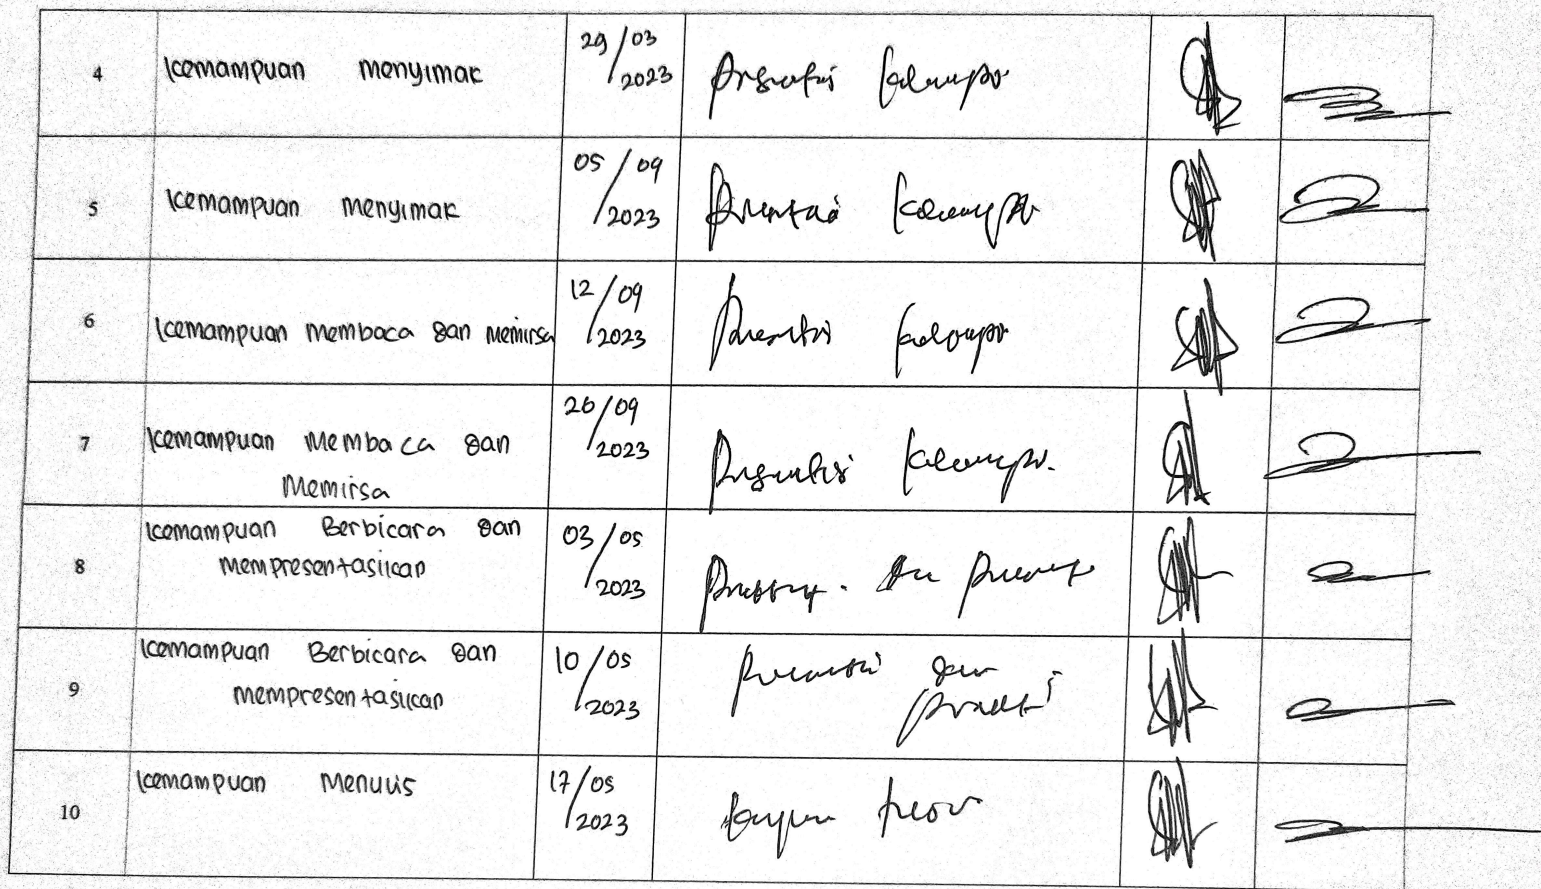 4 Kemampuan menyimak 29/03/2023 Presentasi kelompok
5 Kemampuan menyimak 05/09/2023 Presentasi kelompok
6 Kemampuan membaca dan memirsa 12/09/2023 Presentasi kelompok
7 Kemampuan Membaca dan 26/09/2023 Presentasi kelompok.
Memirsa
8 Kemampuan Berbicara dan 03/05/2023
mempresentasikan
9 Kemampuan Berbicara dan 10/05/2023 Presentasi dan
mempresentasikan praktek
10 Kemampuan Menulis 17/05/2023